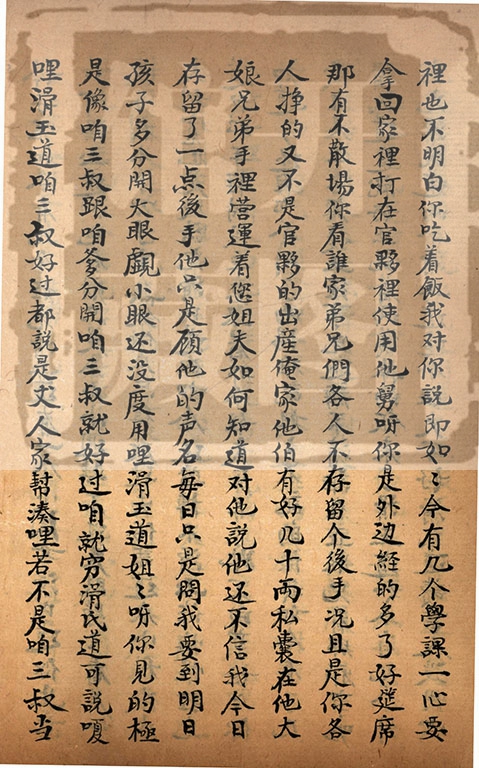 裡也不明白你吃着飯我对你說即如〻今有几个學課一心要
拿回家裡打在官夥裡使用他舅呀你是外边経的多了好筵席
那有不散場你看誰家弟兄們各人不存留个後手况且是你各
人挣的又不是官夥的出産俺家他伯有好几十両私囊在他大
娘兄弟手裡营運着您姐夫如何知道对他說他还不信我今日
存留了一点後手他只是顧他的声名每日只是問我要到明日
孩子多分開大眼覷小眼还没度用哩滑玉道姐〻呀你見的極
是像咱三叔跟咱爹分開咱三叔就好过咱就穷滑氏道可説嗄
哩滑玉道咱三叔好过都説是丈人家幇凑哩若不是咱三叔当